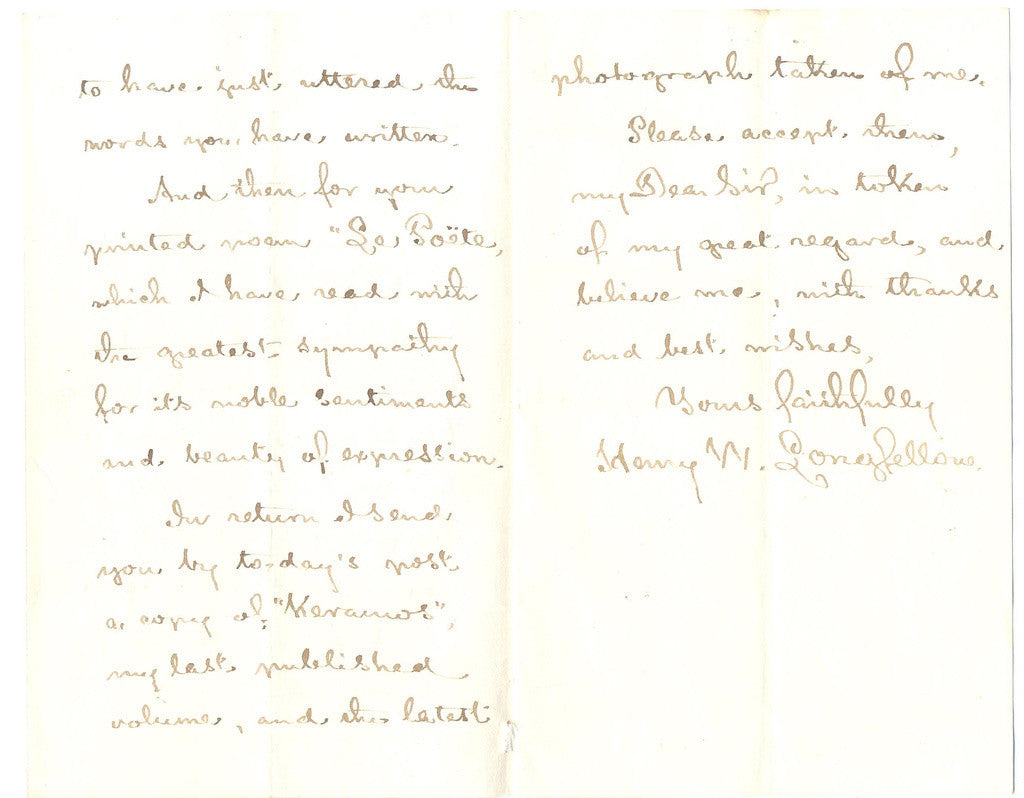 to have just uttered the
words you have written.
And then for your
printed poem "Le Poëte,
which I have read with
the greatest sympathy
for its noble sentiments
and beauty of expression.
In return I send
you by to-day's post
a copy of "Keramos",
my last published
volume, and the latest
photograph taken of me.
Please accept them,
my Dear Sir, in token
of my great regard, and
believe me, with thanks
and best wishes,
Yours faithfully
Henry W. Longfellow.